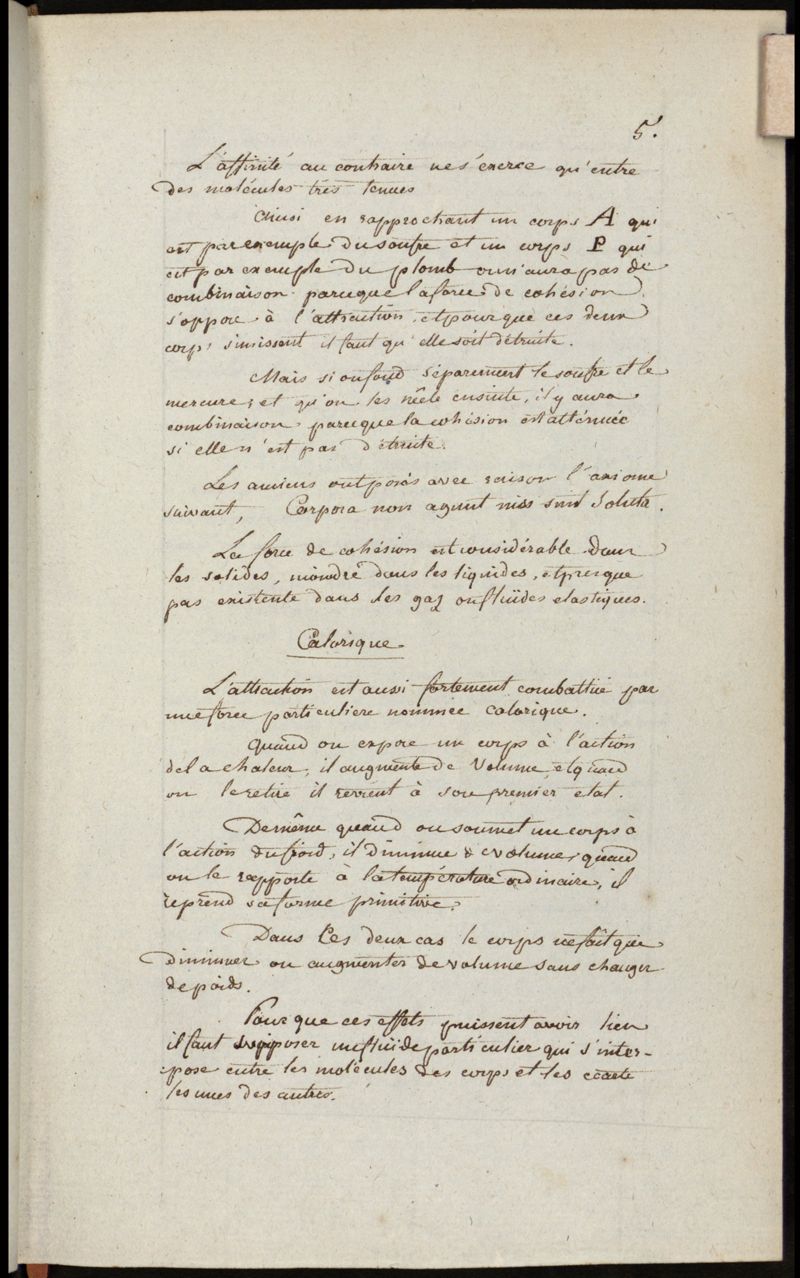 5.
L'affinité au contraire ne s'exerce qu'entre
des molécules très tenues
Ainsi en rapprochant un corps A qui
est par exemple du soufre et un corps P qui
est par exemple du plomb on n'aura pas de
combinaison parceque la force de cohésion
s'oppose à l'attraction, et pour que ces deux
corps s'unissent il faut qu'elle soit détruite.
Mais si on fond séparement le soufre et le
mercure, et qu'on les mêle ensuite, il y aura
combinaison parceque la cohésion est atténuée
si elle n'est pas détruite.
Les anciens ont posés avec raison l'axiome
suivant, Corpora non agunt nisi sint soluta.
La force de cohésion est considérable dans
les solides, moindre dans les liquides, et presque
pas existente dans les gaz ou fluides elastiques.
Calorique.
L'attraction est aussi fortement combattue par
une force particuliere nommée calorique.
Quand on expose un corps à l'action
de la chaleur, il augmente de volume, et quand
on le retire il revient à son premier etat.
De même quand on soumet un corps à
l'action du froid, il diminue de volume, quand
on le rapporte à la température ordinaire, il
reprend sa forme primitive.
Dans ces deux cas le corps ne fait que
diminuer ou augmenter de volume sans changer
de poids.
Pour que ces effets puissent avoir lieu
il faut supposer un fluide particulier qui s'inter-
pose entre les molécules des corps et les écarte
les unes des autres.